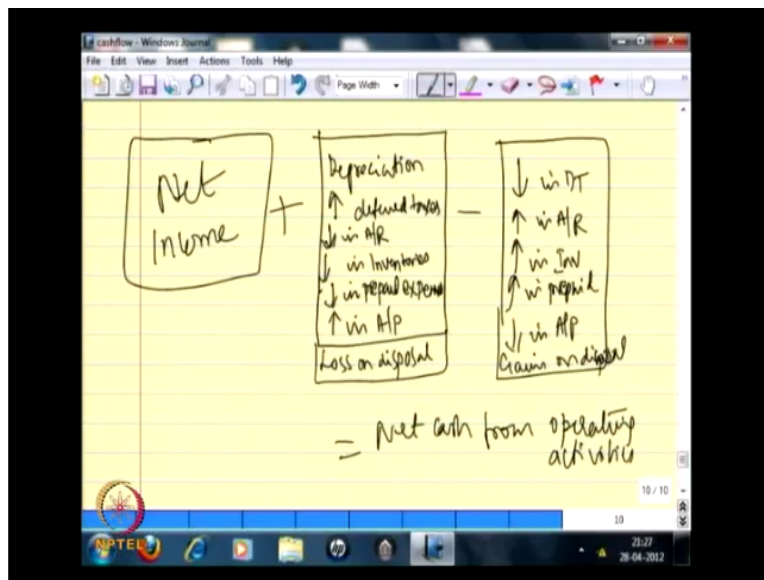 cashflow - Windows Journal
File Edit View Insert Actions Tools Help
Page Width
Net
Income
+
Depreciation
↑ deferred taxes
↓ in A/R
↓ in Inventories
↓ in prepaid expense
↑ in A/P
Loss on disposal
-
↓ in DT
↑ in A/R
↑ in Inv
↑ in prepaid
↓ in A/P
Gains on disposal
= Net cash from operating
activities
10 / 10
10
NPTEL
hp
21:27
28-04-2012